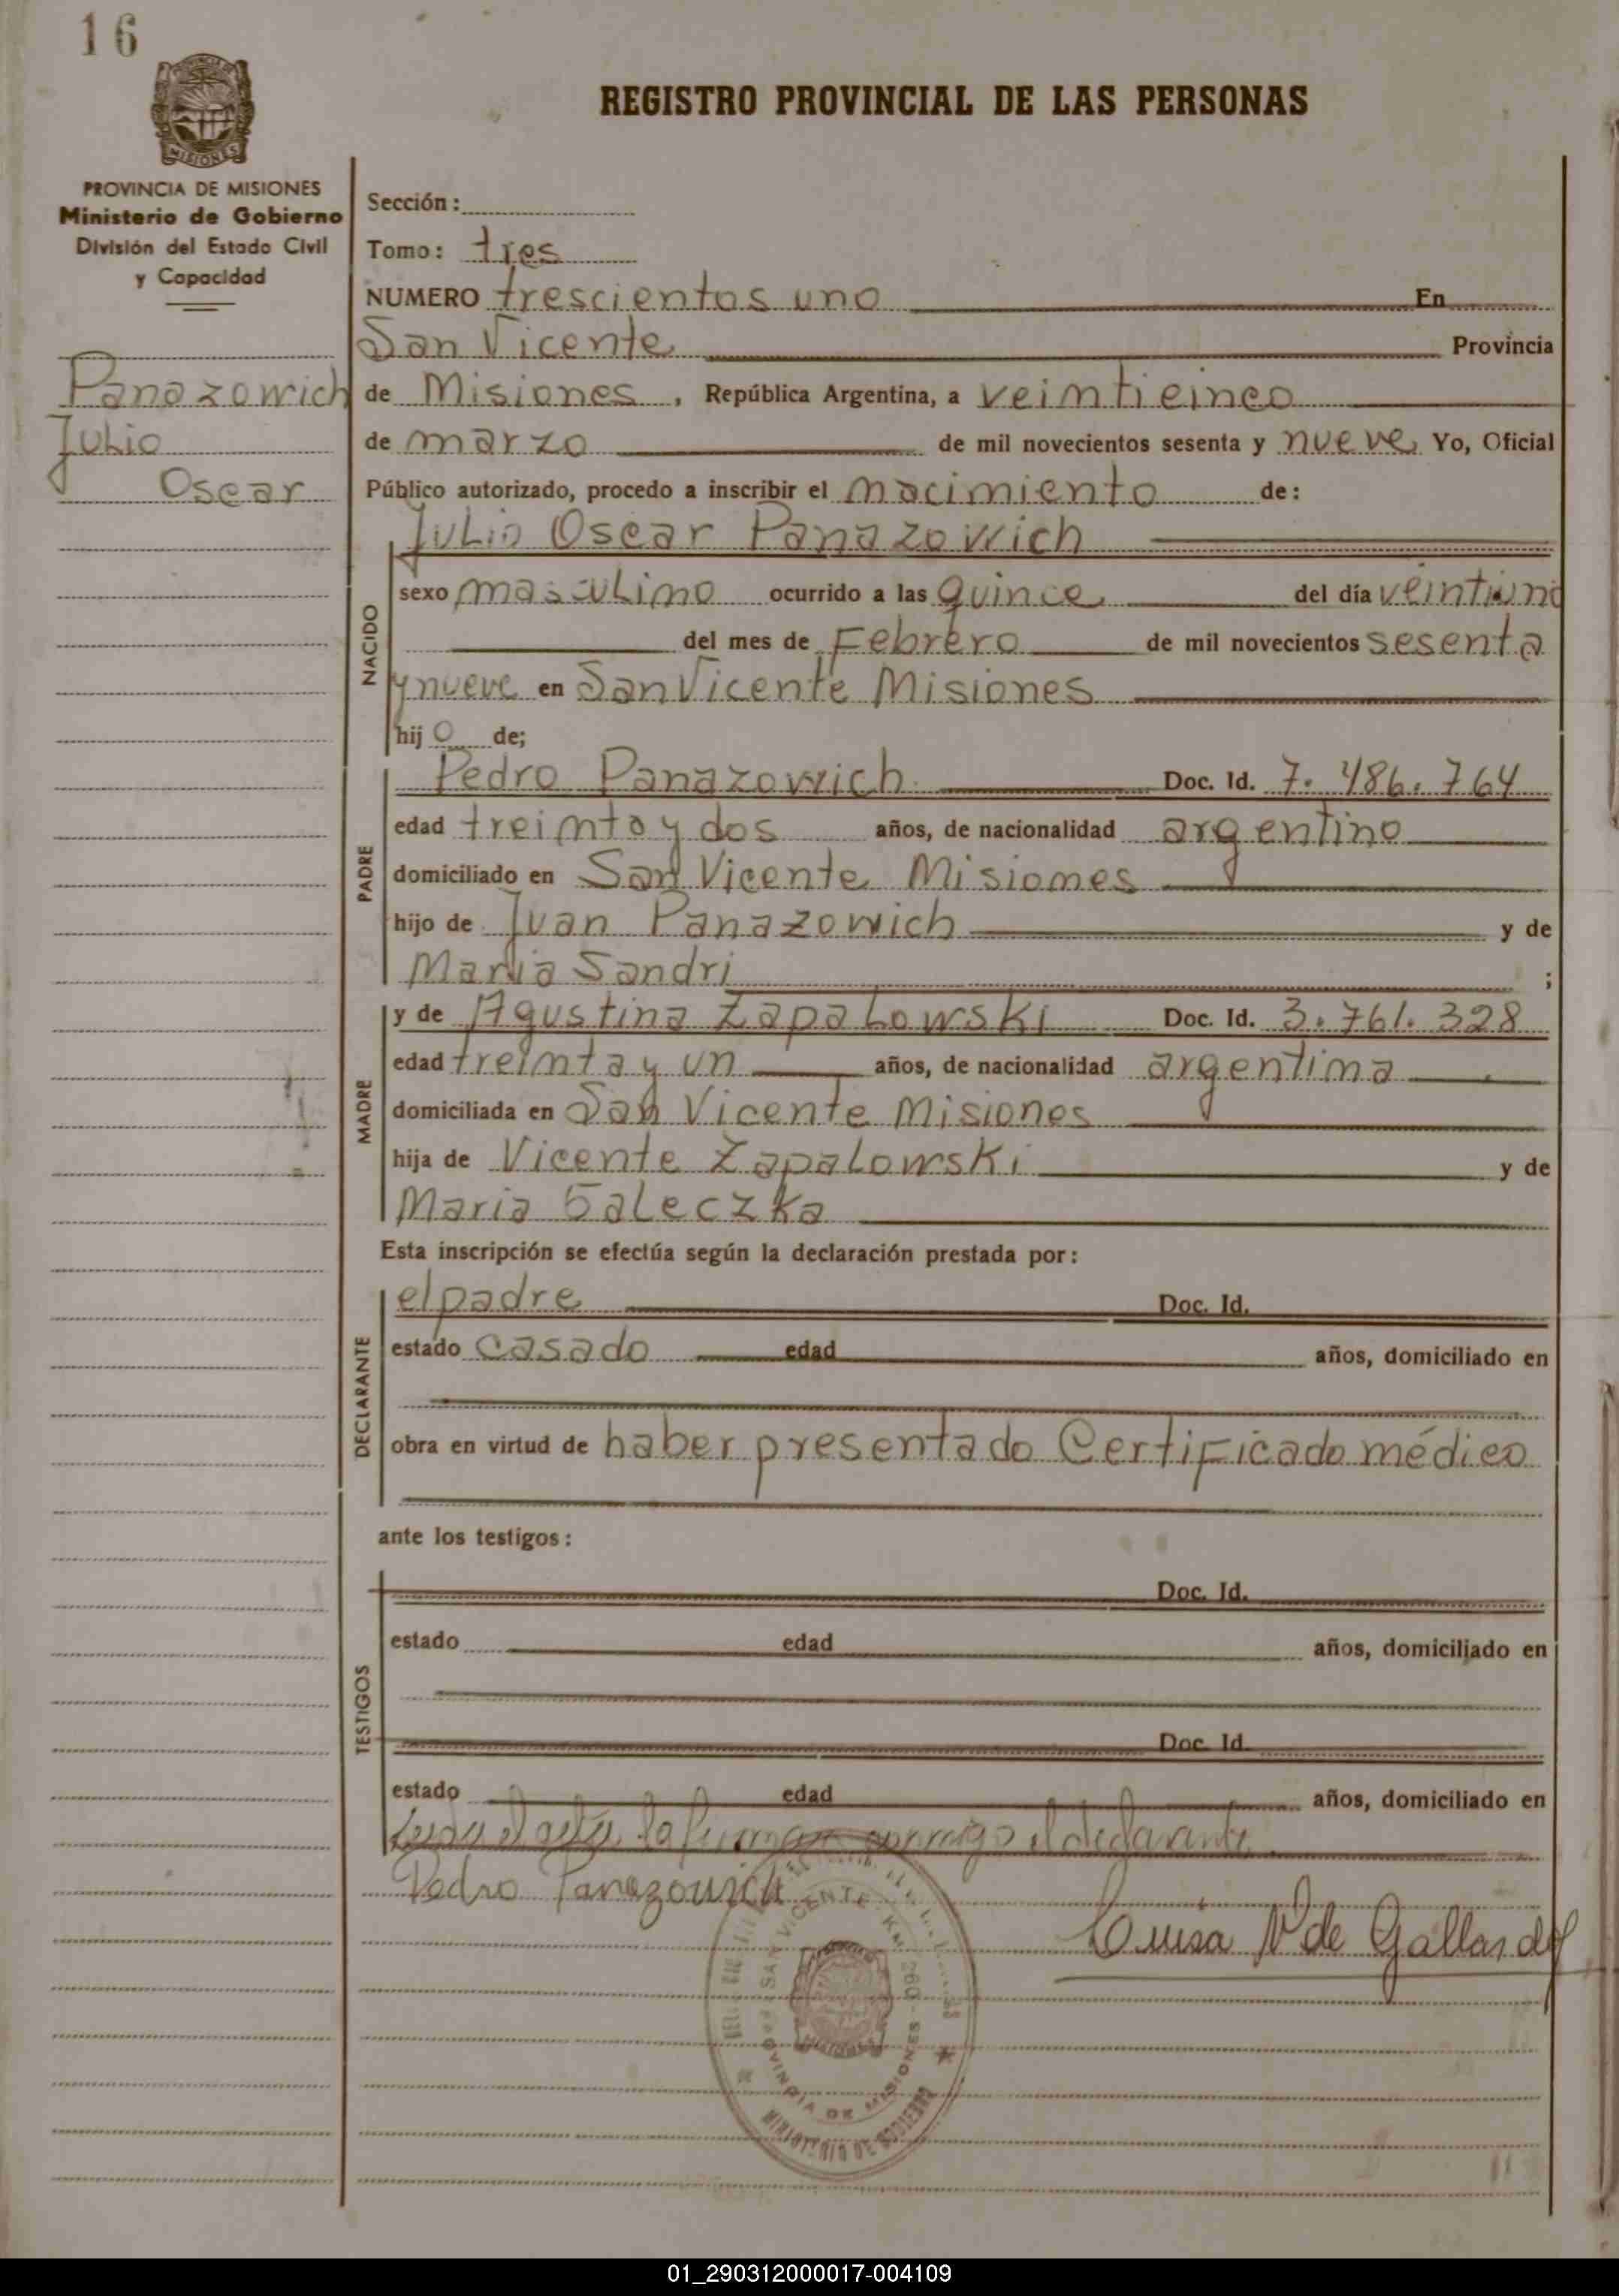 16
REGISTRO PROVINCIAL DE LAS PERSONAS
MISIONES
PROVINCIA DE MISIONES
Ministerio de Gobierno
División del Estado Civil
y Capacidad
Panazowich
Julio
Oscar
Sección:
Tomo: tres
NUMERO trescientos uno En
San Vicente Provincia
de Misiones, República Argentina, a veintieinco
de marzo de mil novecientos sesenta y nueve Yo, Oficial
Público autorizado, procedo a inscribir el nacimiento de:
Julio Oscar Panazowich
NACIDO
sexo masculino ocurrido a las quince del día veintiuno
del mes de Febrero de mil novecientos sesenta
y nueve en San Vicente Misiones
hijo de;
PADRE
Pedro Panazowich Doc. Id. 7.486.764
edad treinta y dos años, de nacionalidad argentino
domiciliado en San Vicente Misiones
hijo de Juan Panazowich y de
Maria Sandri ;
MADRE
y de Agustina Zapalowski Doc. Id. 3.761.328
edad treinta y un años, de nacionalidad argentina
domiciliada en San Vicente Misiones
hija de Vicente Zapalowski y de
Maria Galeczka
Esta inscripción se efectúa según la declaración prestada por:
DECLARANTE
el padre Doc. Id.
estado casado edad años, domiciliado en
obra en virtud de haber presentado Certificado médico
ante los testigos:
TESTIGOS
Doc. Id.
estado edad años, domiciliado en
Doc. Id.
estado edad años, domiciliado en
Leida el acta, la firman conmigo el declarante
Pedro Panazowich
Luisa N de Gallardo
SAN VICENTE KM. 260 - PROVINCIA DE MISIONES
MINISTERIO DE GOBIERNO
01_290312000017-004109